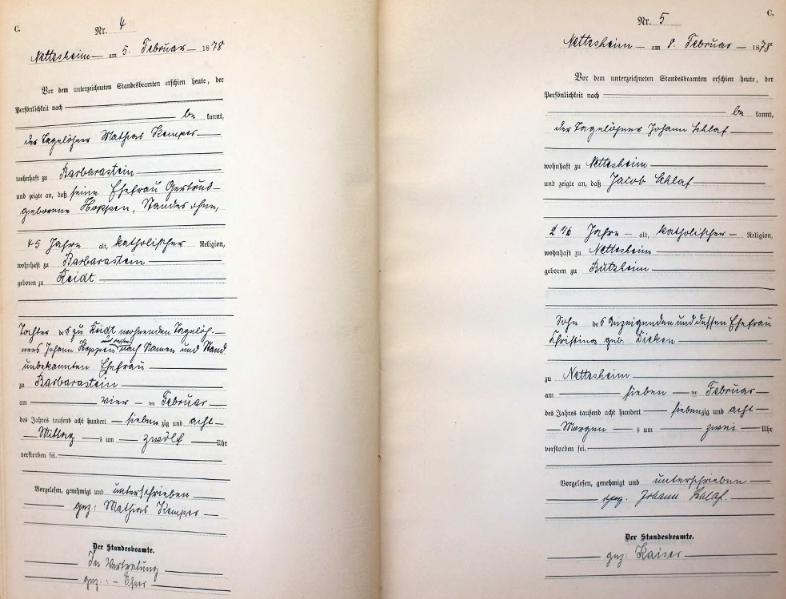 C.
Nr. 4
Nettesheim am 5. Februar 1878
Vor dem unterzeichneten Standesbeamten erschien heute, der
Persönlichkeit nach
be kannt,
der Tagelöhner Mathias Kemper
wohnhaft zu Barbarastein
und zeigte an, daß seine Ehefrau Gertrud
geborene Hoppen, Standes ohne,
45 Jahre alt, katholischer Religion,
wohnhaft zu Barbarastein
geboren zu Keidt
Tochter des zu Keidt wohnenden Tagelöh-
ners Johann Hoppen und dessen nach Namen und Stand
unbekannten Ehefrau
zu Barbarastein
am vier ten Februar
des Jahres tausend acht hundert siebenzig und acht
Mittag s um zwölf Uhr
verstorben sei.
Vorgelesen, genehmigt und unterschrieben
gez: Mathias Kemper
Der Standesbeamte.
In Vertretung
gez.: Esser
C.
Nr. 5
Nettesheim am 8. Februar 1878
Vor dem unterzeichneten Standesbeamten erschien heute, der
Persönlichkeit nach
be kannt,
der Tagelöhner Johann Schlaf
wohnhaft zu Nettesheim
und zeigte an, daß Jacob Schlaf
Jahre alt, katholischer Religion,
wohnhaft zu Nettesheim
geboren zu Butzheim
Sohn des Anzeigenden und dessen Ehefrau
Christina geb. Dicken
zu Nettesheim
am sieben ten Februar
des Jahres tausend acht hundert siebenzig und acht
Morgen s um zwei Uhr
verstorben sei.
Vorgelesen, genehmigt und unterschrieben
gez. Johann Schlaf
Der Standesbeamte.
gez: Kaiser